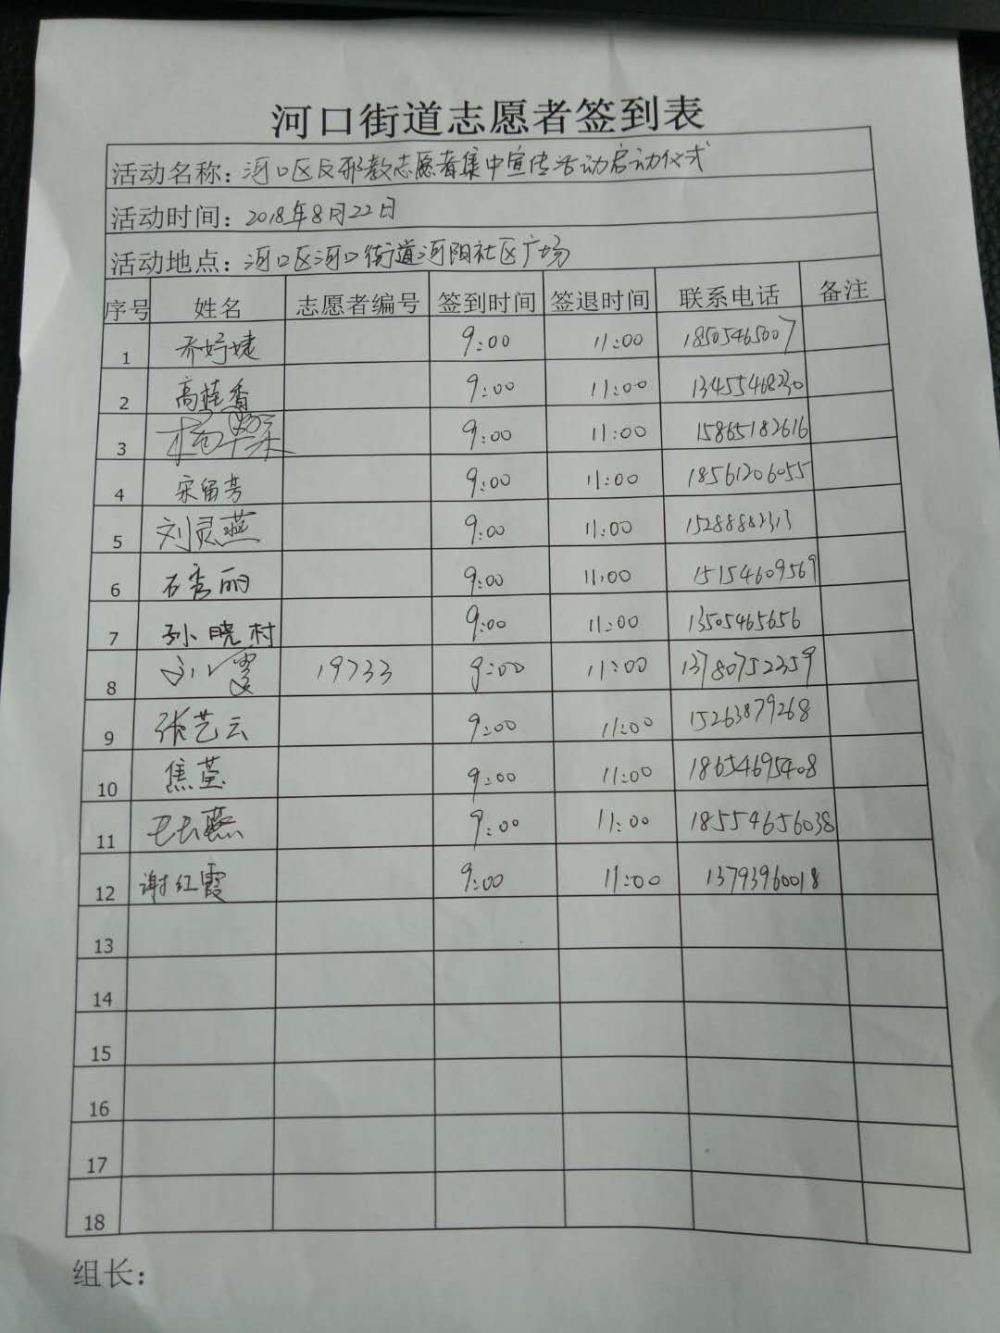 河口街道志愿者签到表
活动名称：河口区反邪教志愿者集中宣传活动启动仪式
活动时间：2018年8月22日
活动地点：河口区河口街道河阳社区广场
序号 姓名 志愿者编号 签到时间 签退时间 联系电话 备注
1 乔婷婕 9:00 11:00 18505465007
2 高桂香 9:00 11:00 13455468230
3 9:00 11:00 15865182616
4 宋留芳 9:00 11:00 18561206055
5 刘灵燕 9:00 11:00 15288882313
6 石秀丽 9:00 11:00 15154609569
7 孙晓村 9:00 11:00 13505465656
8 19733 9:00 11:00 13780752359
9 张艺云 9:00 11:00 15263879268
10 焦莹 9:00 11:00 18654695408
11 9:00 11:00 18554656038
12 谢红霞 9:00 11:00 13793960018
13
14
15
16
17
18
组长：